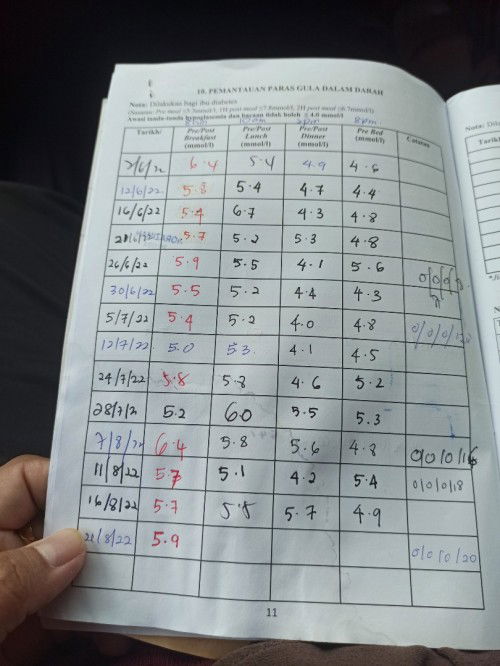 10. PEMANTAUAN PARAS GULA DALAM DARAH
Nota: Dilakukan bagi ibu diabetes
(Sasaran: Pre meal ≤5.3mmol/l, 1H post meal ≤7.8mmol/l, 2H post meal ≤6.7mmol/l)
Awasi tanda-tanda hypoglycemia dan bacaan tidak boleh ≤ 4.0 mmol/l
8am 10am 3pm 8pm
Tarikh/ Pre/Post Breakfast (mmol/l) Pre/Post Lunch (mmol/l) Pre/Post Dinner (mmol/l) Pre Bed (mmol/l) Catatan
2/6/22 6.4 5.4 4.9 4.6
12/6/22 5.8 5.4 4.7 4.4
16/6/22 5.4 6.7 4.3 4.8
5.7 5.2 5.3 4.8
26/6/22 5.9 5.5 4.1 5.6
30/6/22 5.5 5.2 4.4 4.3
5/7/22 5.4 5.2 4.0 4.8
12/7/22 5.0 5.3 4.1 4.5
24/7/22 5.8 5.8 4.6 5.2
28/7/2 5.2 6.0 5.5 5.3
7/8/22 6.4 5.8 5.6 4.8 0/0/0/16
11/8/22 5.7 5.1 4.2 5.4 0/0/0/18
16/8/22 5.7 5.5 5.7 4.9
21/8/22 5.9 0/0/0/20
11